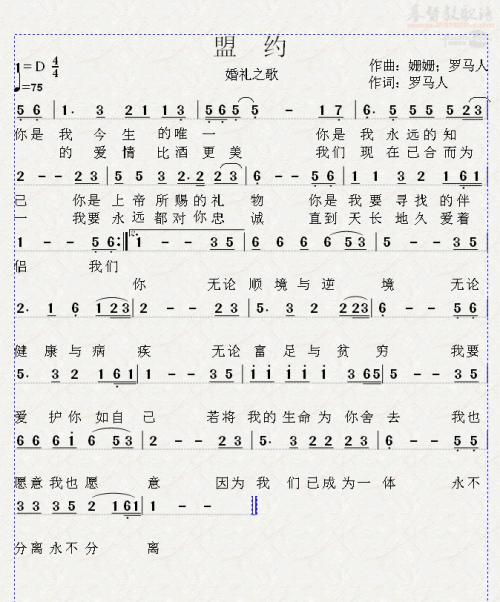 基督教歌谱
盟 约
1=D 4/4
♩=75
婚礼之歌
作曲：姗姗；罗马人
作词：罗马人
5 6 | 1· 3 2 1 1 3 | 5 6 5 5 - 1 7 | 6· 5 5 5 5 2 3 |
你是 我 今 生 的唯 一 你是 我 永远的知
的 爱 情 比酒 更 美 我们 现在已合而为
2 - - 2 3 | 5 5 3 2· 2 2 3 | 6 - - 5 6 | 1 1 3 2 1 6 1 |
己 你是 上帝所赐的礼 物 你是 我要 寻找的伴
一 我要 永远都对你忠 诚 直到 天长地久爱着
1 - - 5 6 :| 1 - - 3 5 | 6 6 6 6 5 3 | 5 - - 3 5 |
侣 我们
你 无论 顺境与逆 境 无论
2· 1 6 1 2 3 | 2 - - 2 3 | 5· 3 2 2 2 3 | 6 - - 5 6 |
健康与病 疾 无论 富足与贫 穷 我要
5· 3 2 1 6 1 | 1 - - 3 5 | i i i i i 3 6 5 | 5 - - 3 5 |
爱护你如自 己 若将 我的生命为你舍 去 我也
6 6 6 i 6 5 3 | 2 - - 2 3 | 5· 3 2 2 2 3 | 6 - - 5 5 |
愿意我也愿 意 因为 我们已成为一 体 永不
3 3 3 5 2 1 6 1 | 1 - -
分离永不分 离